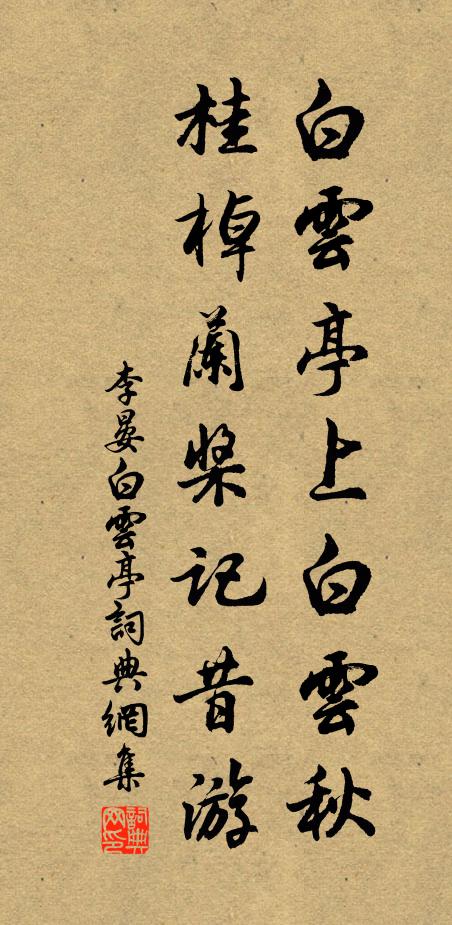 白雲亭上白雲秋
桂棹蘭槳記昔游
李晏白雲亭詞典網集
詞典網印